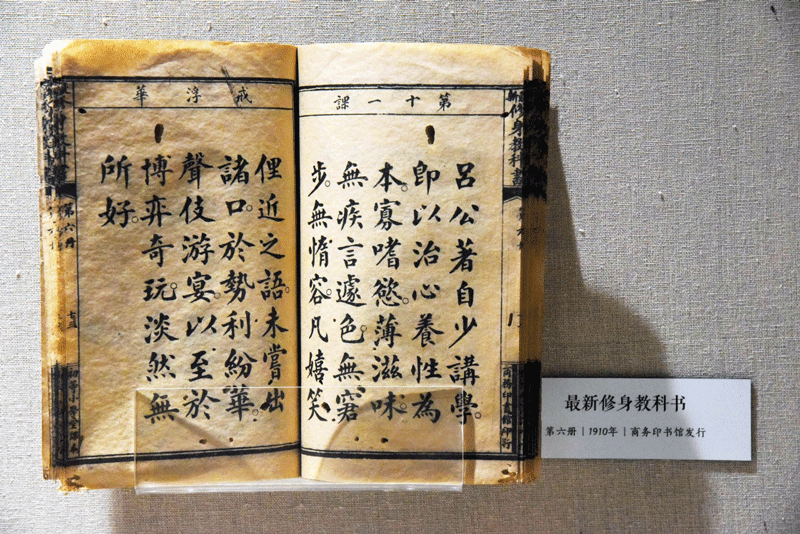 新修身教科書
商務印書館印行
第十一課
呂公著自少講學。
即以治心養性為
本。寡嗜慾。薄滋味。
無疾言遽色。無窘
步。無惰容。凡嬉笑。
戒浮華
俚近之語。未嘗出
諸口。於勢利紛華。
聲伎游宴。以至於
博弈奇玩。淡然無
所好。
第六册
十五
最新修身教科书
第六册｜1910年｜商务印书馆发行